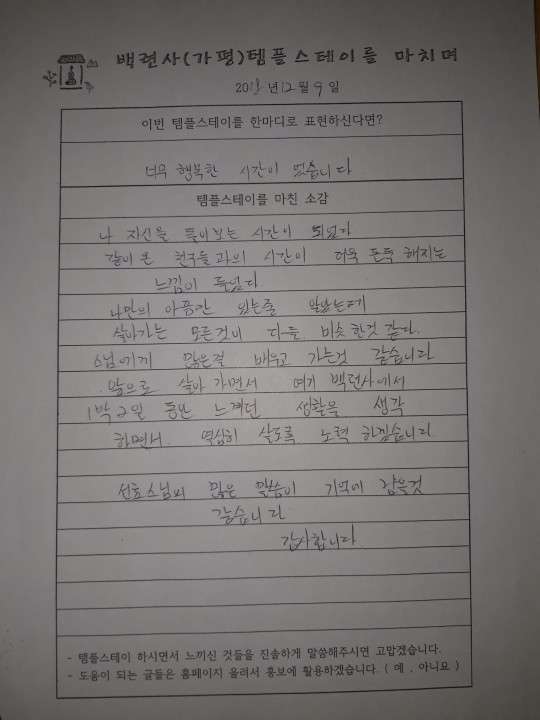 백련사(가평)템플스테이를 마치며
2018년12월 9일
이번 템플스테이를 한마디로 표현하신다면?
너무 행복한 시간이 었습니다
템플스테이를 마친 소감
나 자신을 돌이보는 시간이 되었다
같이 온 친구들 과의 시간이 더욱 돈독 해지는
느낌이 들었다
나만의 아픔간 있는줄 알았는데
살아가는 모든것이 다들 비슷 한것 같다.
스님에게 많은걸 배우고 가는것 같습니다
앞으로 살아 가면서 여기 백련사에서
1박 2일 동안 느계던 생활을 생각
하면서. 열심히 살도록 노력 하겠습니다.
선효스님의 많은 말씀이 기억에 남을것
같습니다.
감사합니다.
- 템플스테이 하시면서 느끼신 것들을 진솔하게 말씀해주시면 고맙겠습니다.
- 도움이 되는 글들은 홈페이지 올려서 홍보에 활용하겠습니다. ( 예 . 아니요 )